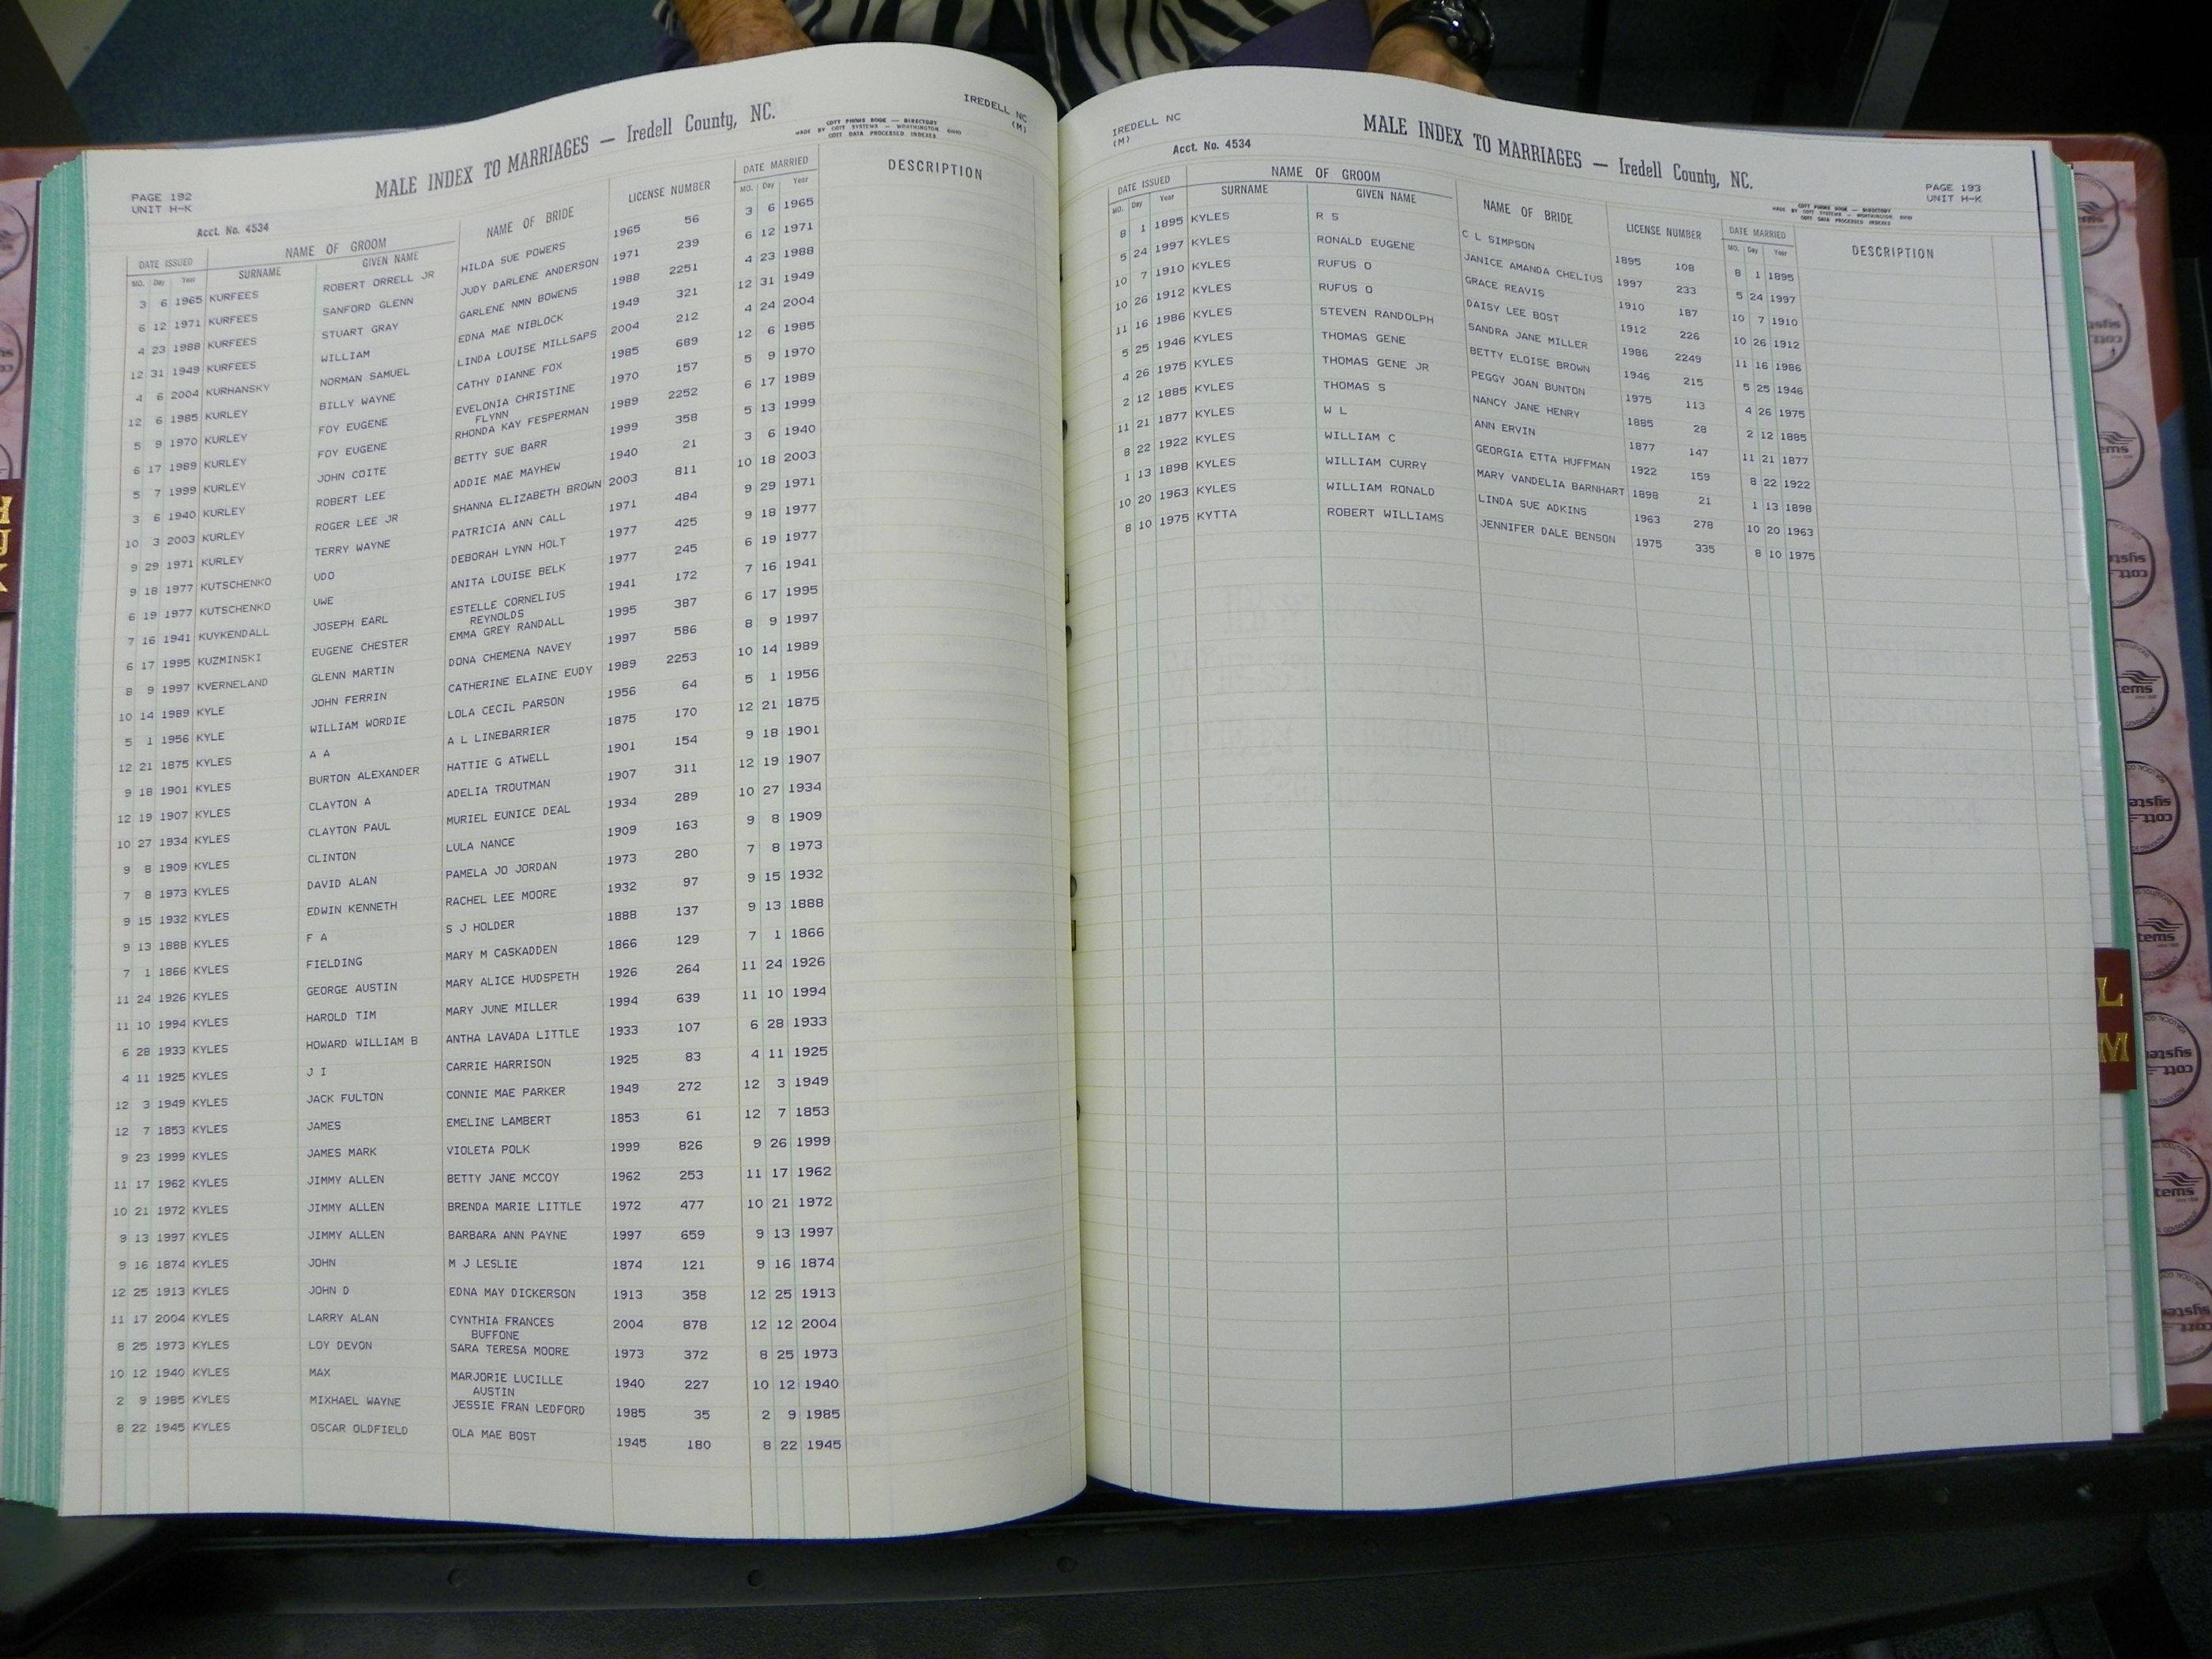 IREDELL NC
(M)
MALE INDEX TO MARRIAGES — Iredell County, NC.
COTT PHONIX BOOK — DIRECTORY
MADE BY COTT SYSTEMS — WORTHINGTON OHIO
COTT DATA PROCESSED INDEXES
PAGE 192
UNIT H-K
Acct. No. 4534
DATE ISSUED NAME OF GROOM NAME OF BRIDE LICENSE NUMBER DATE MARRIED DESCRIPTION
MO. Day Year SURNAME GIVEN NAME MO. Day Year
3 6 1965 KURFEES ROBERT ORRELL JR HILDA SUE POWERS 1965 56 3 6 1965
6 12 1971 KURFEES SANFORD GLENN JUDY DARLENE ANDERSON 1971 239 6 12 1971
4 23 1988 KURFEES STUART GRAY GARLENE NMN BOWENS 1988 2251 4 23 1988
12 31 1949 KURFEES WILLIAM EDNA MAE NIBLOCK 1949 321 12 31 1949
4 6 2004 KURHANSKY NORMAN SAMUEL LINDA LOUISE MILLSAPS 2004 212 4 24 2004
12 6 1985 KURLEY BILLY WAYNE CATHY DIANNE FOX 1985 689 12 6 1985
5 9 1970 KURLEY FOY EUGENE EVELONIA CHRISTINE 1970 157 5 9 1970
FLYNN
6 17 1989 KURLEY FOY EUGENE RHONDA KAY FESPERMAN 1989 2252 6 17 1989
5 7 1999 KURLEY JOHN COITE BETTY SUE BARR 1999 358 5 13 1999
3 6 1940 KURLEY ROBERT LEE ADDIE MAE MAYHEW 1940 21 3 6 1940
10 3 2003 KURLEY ROGER LEE JR SHANNA ELIZABETH BROWN 2003 811 10 18 2003
9 29 1971 KURLEY TERRY WAYNE PATRICIA ANN CALL 1971 484 9 29 1971
9 18 1977 KUTSCHENKO UDO DEBORAH LYNN HOLT 1977 425 9 18 1977
6 19 1977 KUTSCHENKO UWE ANITA LOUISE BELK 1977 245 6 19 1977
7 16 1941 KUYKENDALL JOSEPH EARL ESTELLE CORNELIUS 1941 172 7 16 1941
REYNOLDS
6 17 1995 KUZMINSKI EUGENE CHESTER EMMA GREY RANDALL 1995 387 6 17 1995
8 9 1997 KVERNELAND GLENN MARTIN DONA CHEMENA NAVEY 1997 586 8 9 1997
10 14 1989 KYLE JOHN FERRIN CATHERINE ELAINE EUDY 1989 2253 10 14 1989
5 1 1956 KYLE WILLIAM WORDIE LOLA CECIL PARSON 1956 64 5 1 1956
12 21 1875 KYLES A A A L LINEBARRIER 1875 170 12 21 1875
9 18 1901 KYLES BURTON ALEXANDER HATTIE G ATWELL 1901 154 9 18 1901
12 19 1907 KYLES CLAYTON A ADELIA TROUTMAN 1907 311 12 19 1907
10 27 1934 KYLES CLAYTON PAUL MURIEL EUNICE DEAL 1934 289 10 27 1934
9 8 1909 KYLES CLINTON LULA NANCE 1909 163 9 8 1909
7 8 1973 KYLES DAVID ALAN PAMELA JO JORDAN 1973 280 7 8 1973
9 15 1932 KYLES EDWIN KENNETH RACHEL LEE MOORE 1932 97 9 15 1932
9 13 1888 KYLES F A S J HOLDER 1888 137 9 13 1888
7 1 1866 KYLES FIELDING MARY M CASKADDEN 1866 129 7 1 1866
11 24 1926 KYLES GEORGE AUSTIN MARY ALICE HUDSPETH 1926 264 11 24 1926
11 10 1994 KYLES HAROLD TIM MARY JUNE MILLER 1994 639 11 10 1994
6 28 1933 KYLES HOWARD WILLIAM B ANTHA LAVADA LITTLE 1933 107 6 28 1933
4 11 1925 KYLES J I CARRIE HARRISON 1925 83 4 11 1925
12 3 1949 KYLES JACK FULTON CONNIE MAE PARKER 1949 272 12 3 1949
12 7 1853 KYLES JAMES EMELINE LAMBERT 1853 61 12 7 1853
9 23 1999 KYLES JAMES MARK VIOLETA POLK 1999 826 9 26 1999
11 17 1962 KYLES JIMMY ALLEN BETTY JANE MCCOY 1962 253 11 17 1962
10 21 1972 KYLES JIMMY ALLEN BRENDA MARIE LITTLE 1972 477 10 21 1972
9 13 1997 KYLES JIMMY ALLEN BARBARA ANN PAYNE 1997 659 9 13 1997
9 16 1874 KYLES JOHN M J LESLIE 1874 121 9 16 1874
12 25 1913 KYLES JOHN D EDNA MAY DICKERSON 1913 358 12 25 1913
11 17 2004 KYLES LARRY ALAN CYNTHIA FRANCES 2004 878 12 12 2004
BUFFONE
8 25 1973 KYLES LOY DEVON SARA TERESA MOORE 1973 372 8 25 1973
10 12 1940 KYLES MAX MARJORIE LUCILLE 1940 227 10 12 1940
AUSTIN
2 9 1985 KYLES MIXHAEL WAYNE JESSIE FRAN LEDFORD 1985 35 2 9 1985
8 22 1945 KYLES OSCAR OLDFIELD OLA MAE BOST 1945 180 8 22 1945
IREDELL NC
(M)
MALE INDEX TO MARRIAGES — Iredell County, NC.
Acct. No. 4534
PAGE 193
UNIT H-K
COTT PHONIX BOOK — DIRECTORY
MADE BY COTT SYSTEMS — WORTHINGTON OHIO
COTT DATA PROCESSED INDEXES
DATE ISSUED NAME OF GROOM NAME OF BRIDE LICENSE NUMBER DATE MARRIED DESCRIPTION
MO. Day Year SURNAME GIVEN NAME MO. Day Year
8 1 1895 KYLES R S C L SIMPSON 1895 108 8 1 1895
5 24 1997 KYLES RONALD EUGENE JANICE AMANDA CHELIUS 1997 233 5 24 1997
10 7 1910 KYLES RUFUS O GRACE REAVIS 1910 187 10 7 1910
10 26 1912 KYLES RUFUS O DAISY LEE BOST 1912 226 10 26 1912
11 16 1986 KYLES STEVEN RANDOLPH SANDRA JANE MILLER 1986 2249 11 16 1986
5 25 1946 KYLES THOMAS GENE BETTY ELOISE BROWN 1946 215 5 25 1946
4 26 1975 KYLES THOMAS GENE JR PEGGY JOAN BUNTON 1975 113 4 26 1975
2 12 1885 KYLES THOMAS S NANCY JANE HENRY 1885 28 2 12 1885
11 21 1877 KYLES W L ANN ERVIN 1877 147 11 21 1877
8 22 1922 KYLES WILLIAM C GEORGIA ETTA HUFFMAN 1922 159 8 22 1922
1 13 1898 KYLES WILLIAM CURRY MARY VANDELIA BARNHART 1898 21 1 13 1898
10 20 1963 KYLES WILLIAM RONALD LINDA SUE ADKINS 1963 278 10 20 1963
8 10 1975 KYTTA ROBERT WILLIAMS JENNIFER DALE BENSON 1975 335 8 10 1975
L
M